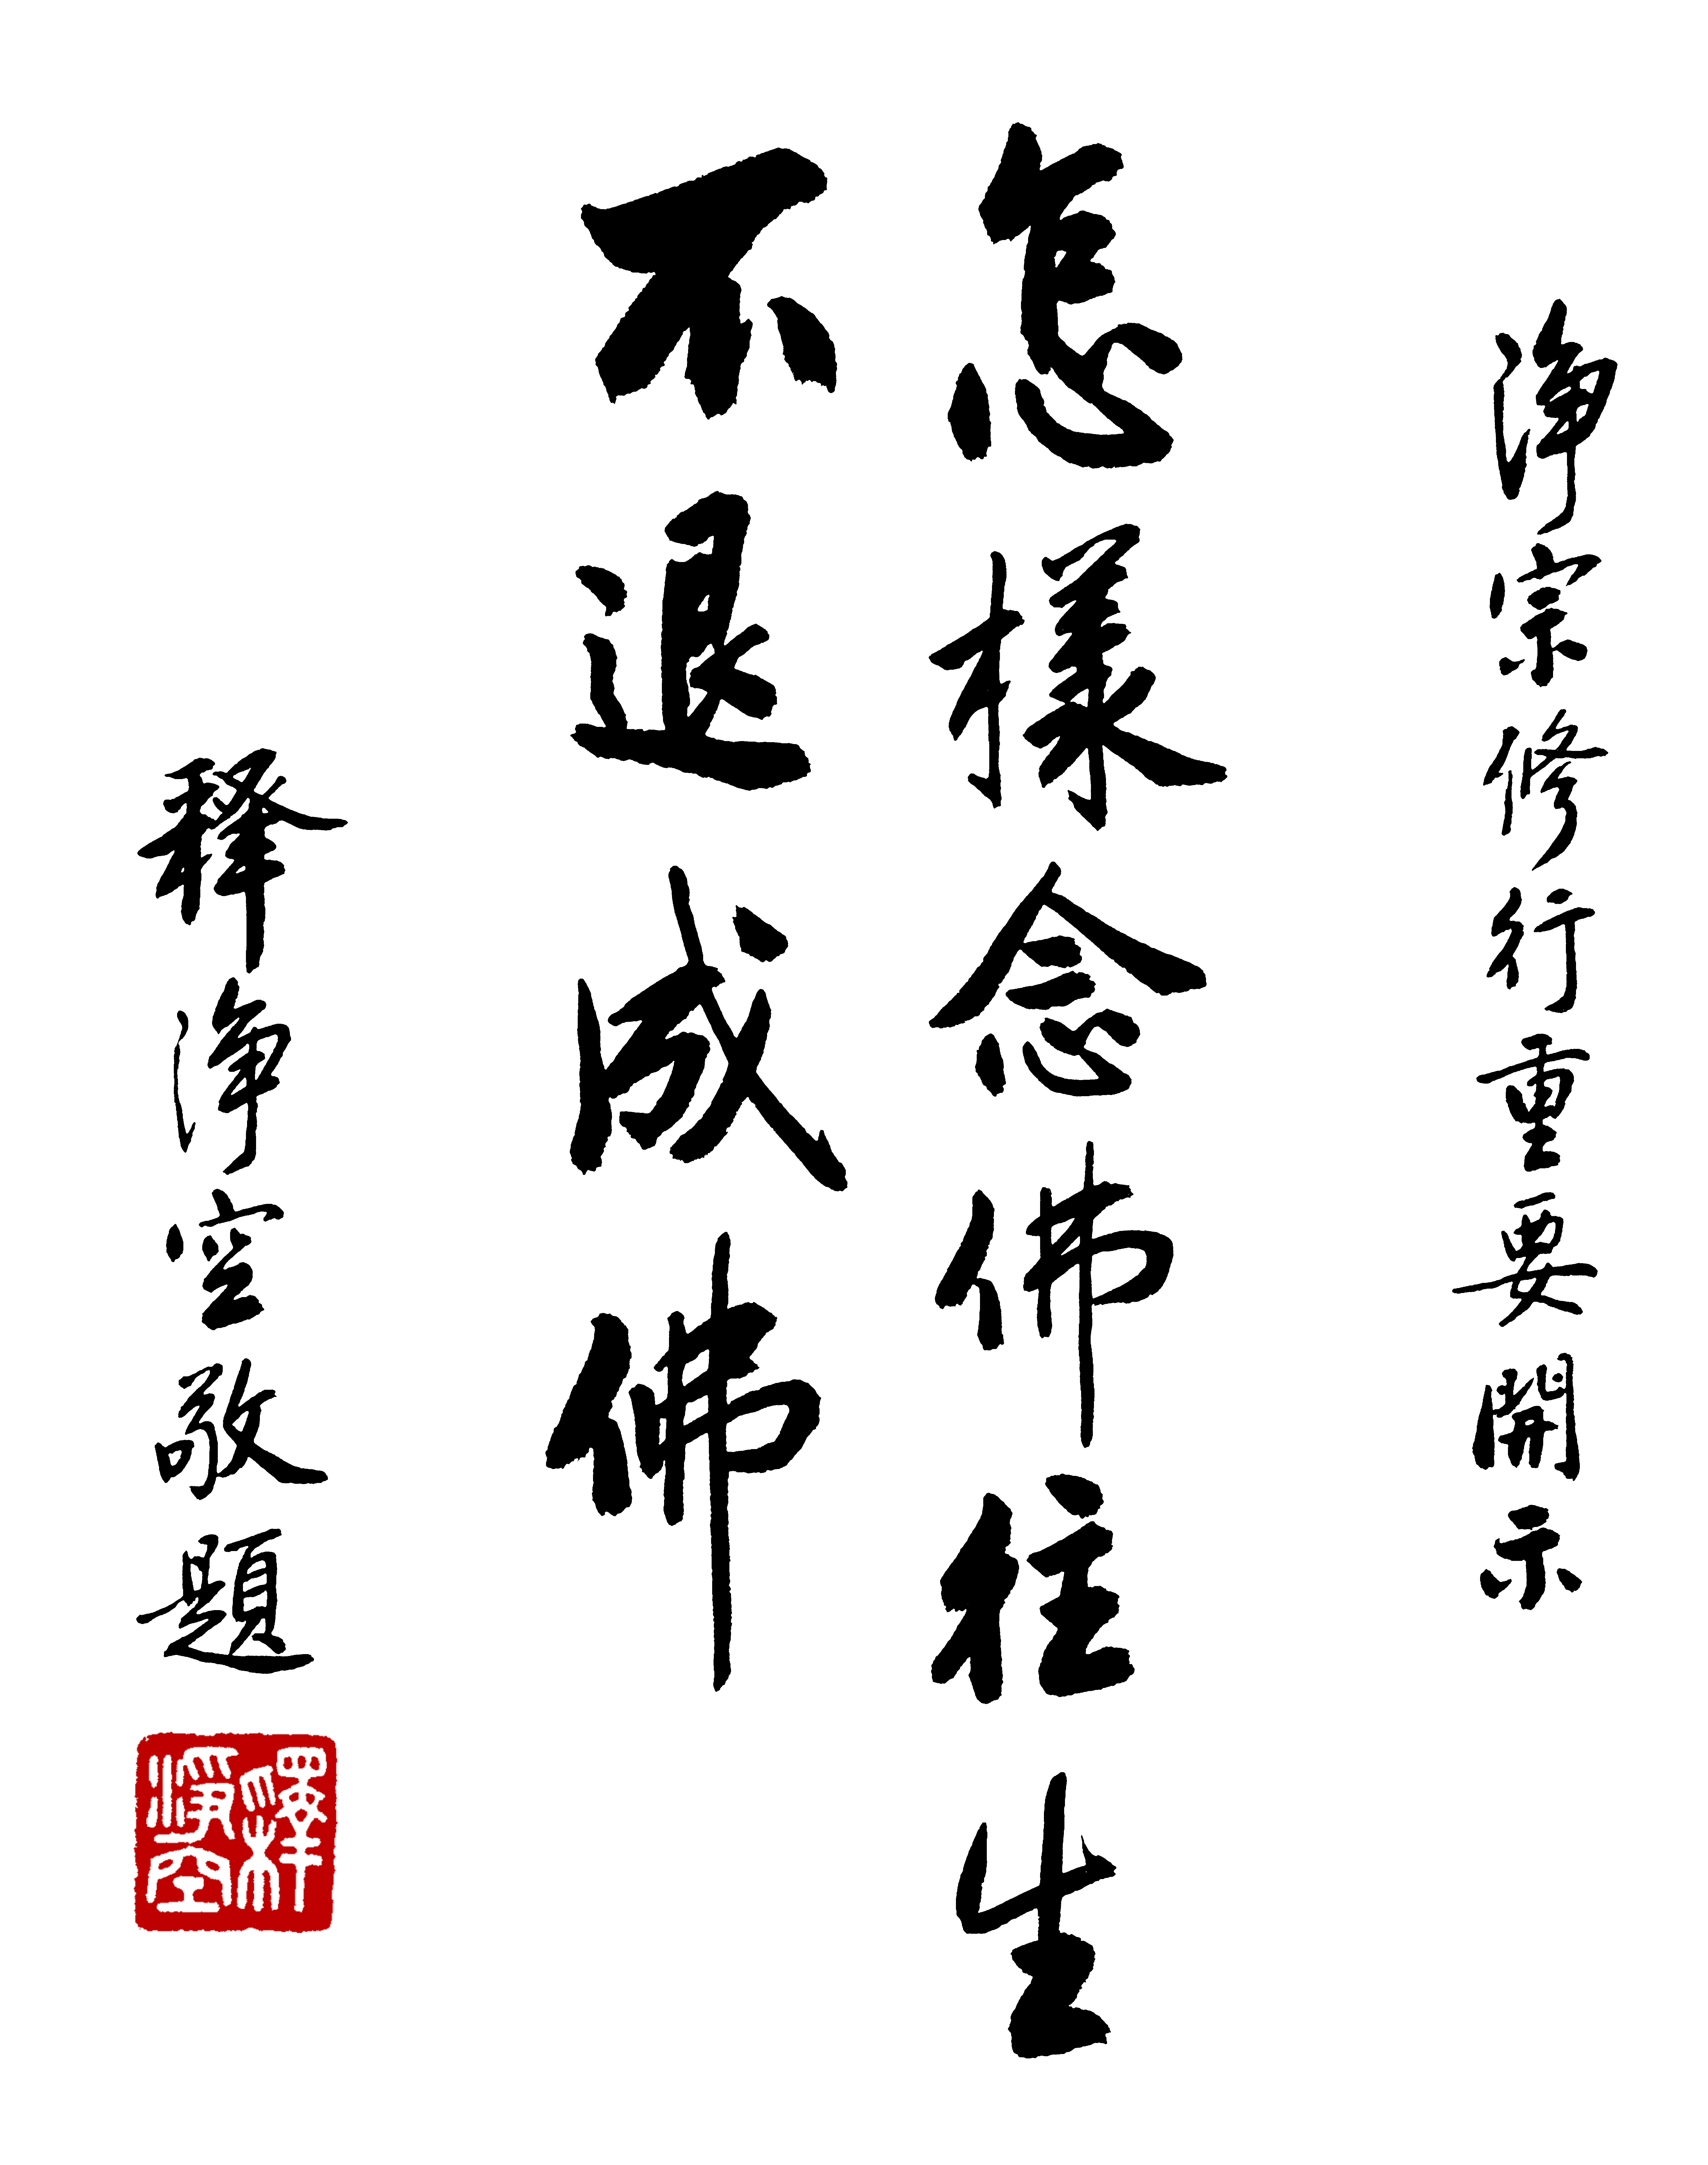 淨宗修行重要開示
怎樣念佛往生
不退成佛
释淨空敬題
釋淨空